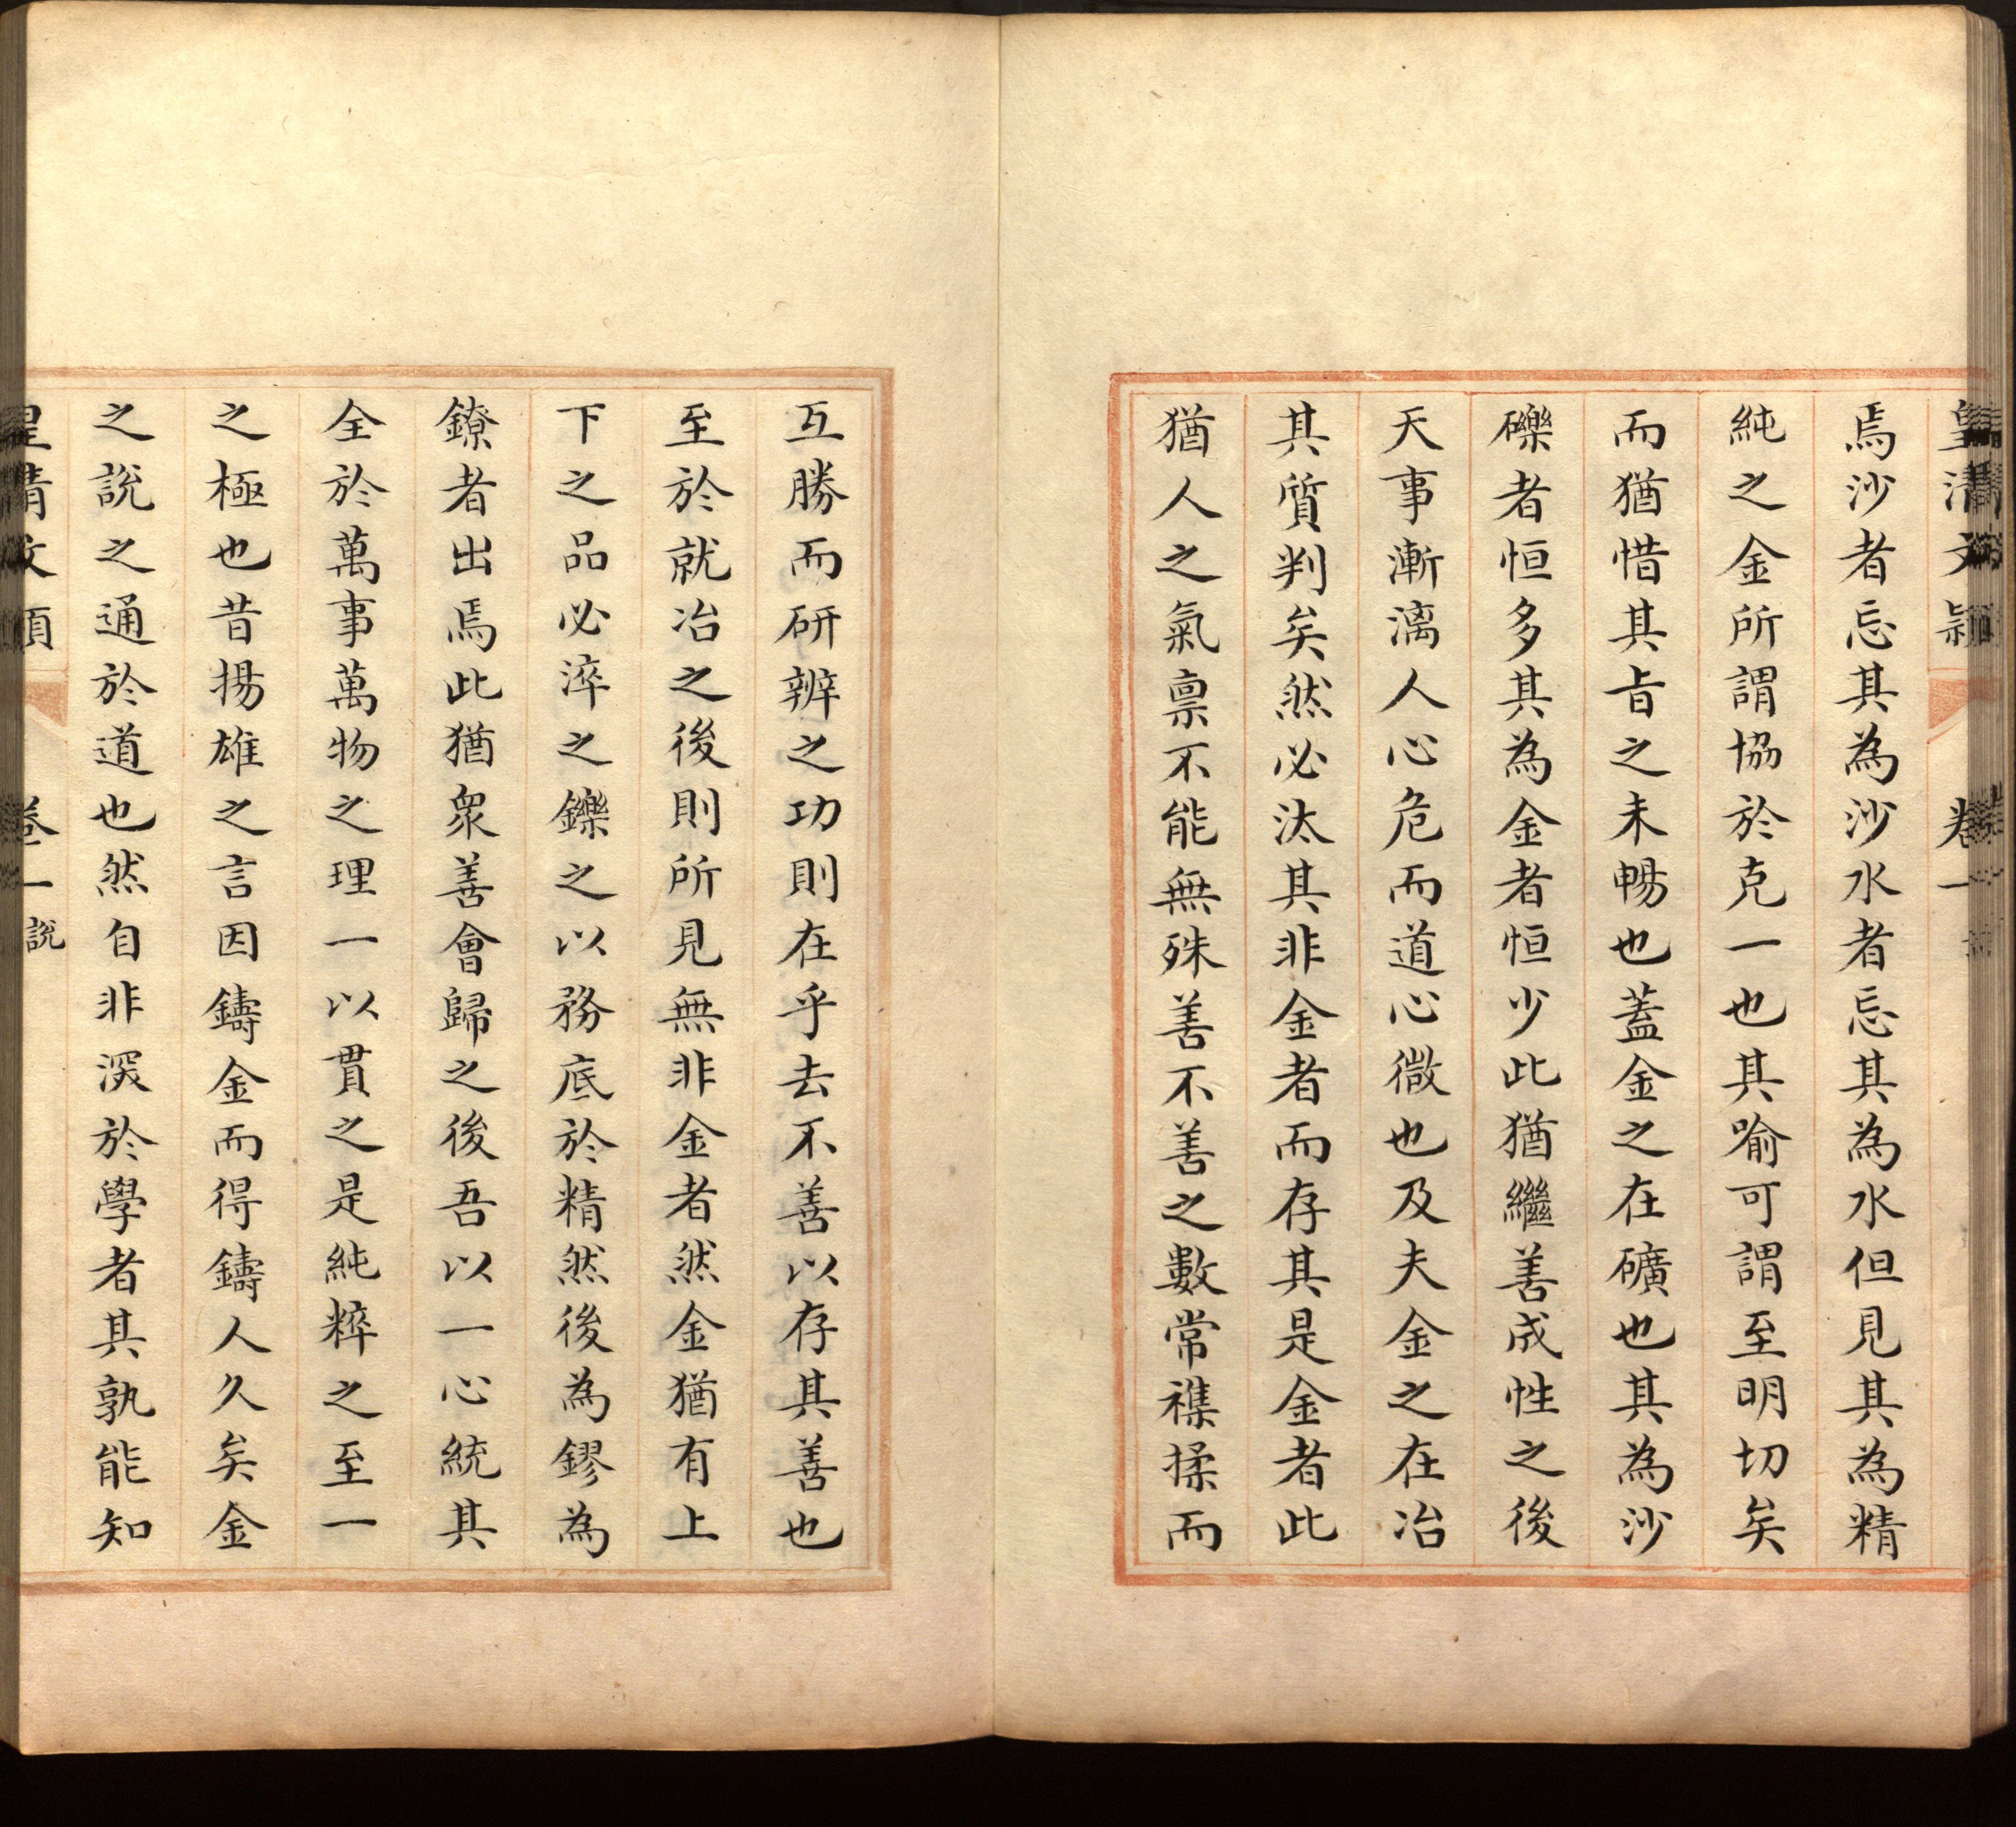 皇清文穎 卷一
焉沙者忘其為沙水者忘其為水但見其為精
純之金所謂協於克一也其喻可謂至明切矣
而猶惜其㫖之未暢也蓋金之在礦也其為沙
礫者恒多其為金者恒少此猶繼善成性之後
天事漸漓人心危而道心微也及夫金之在冶
其質判矣然必汰其非金者而存其是金者此
猶人之氣禀不能無殊善不善之數常襍揉而
互勝而研辨之功則在乎去不善以存其善也
至於就冶之後則所見無非金者然金猶有上
下之品必淬之鑠之以務底於精然後為鏐為
鐐者出焉此猶衆善會歸之後吾以一心統其
全於萬事萬物之理一以貫之是純粹之至一
之極也昔揚雄之言因鑄金而得鑄人久矣金
之說之通於道也然自非深於學者其孰能知
皇清文穎 卷一 說